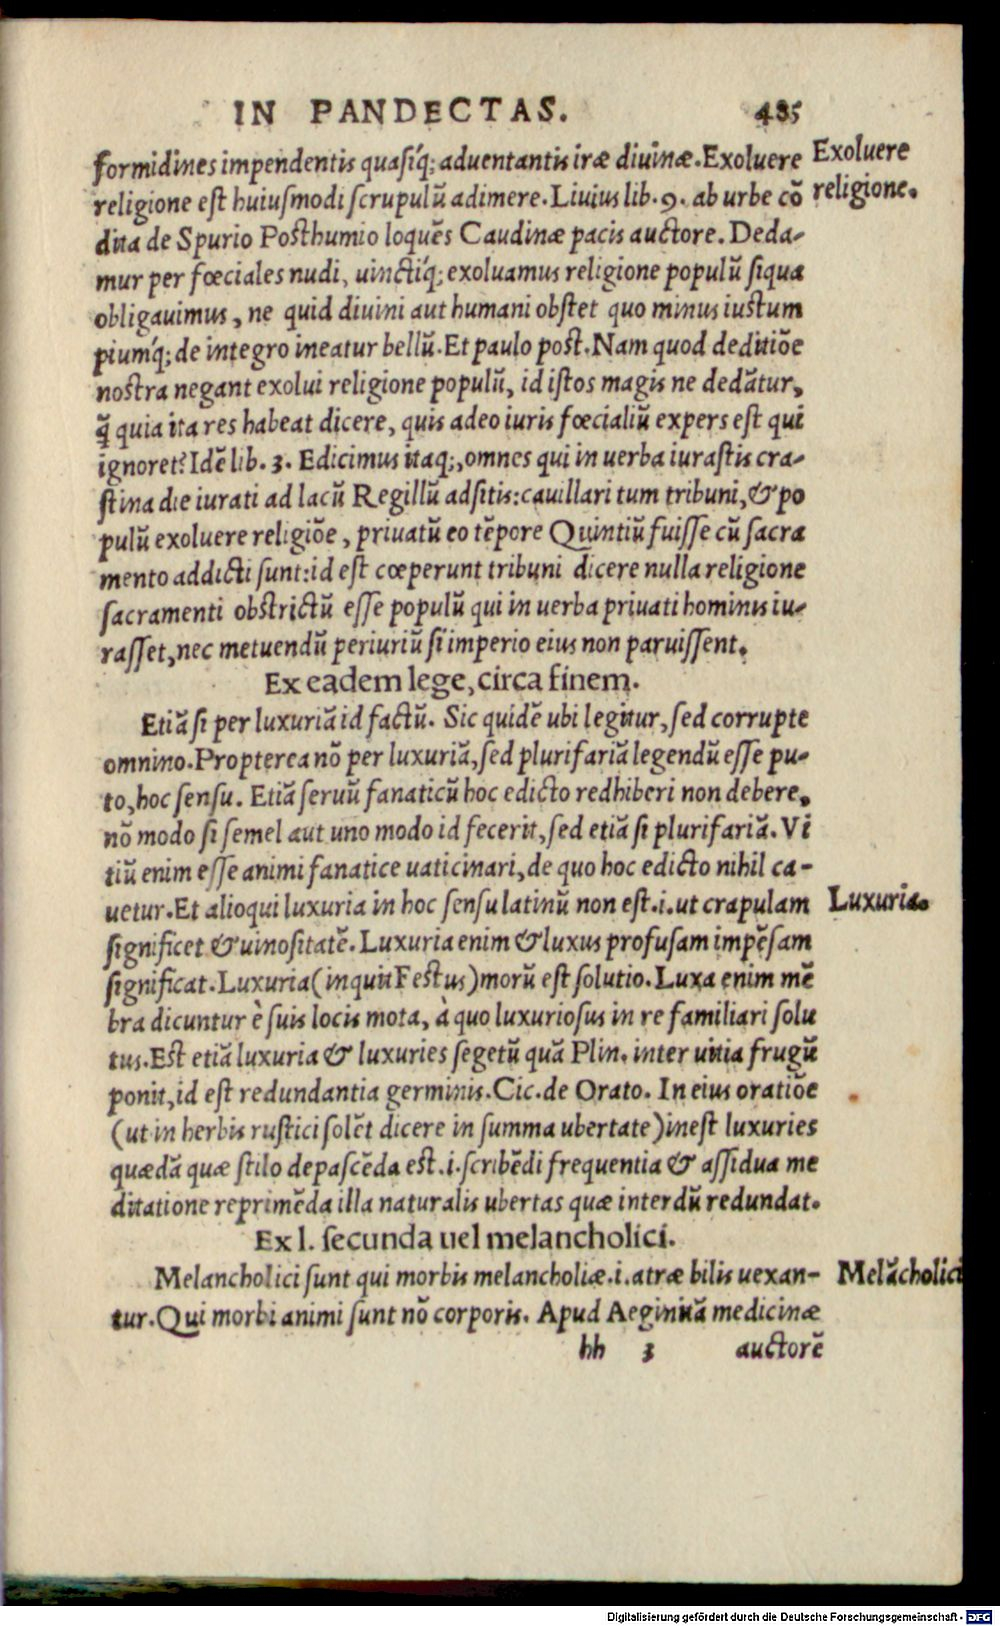 IN PANDECTAS. 485
formidines impendentis quasíq; aduentantis iræ diuinæ. Exoluere
Exoluere
religione est huiusmodi scrupulũ adimere. Liuius lib. 9. ab urbe cõ
religione.
dita de Spurio Posthumio loquẽs Caudinæ pacis auctore. Deda-
mur per fœciales nudi, uinctíq; exoluamus religione populũ siqua
obligauimus, ne quid diuini aut humani obstet quo minus iustum
piumq́; de integro ineatur bellũ. Et paulo post. Nam quod deditiõe
nostra negant exolui religione populũ, id istos magis ne dedãtur,
q̃ quia ita res habeat dicere, quis adeo iuris fœcialiũ expers est qui
ignoret? Idẽ lib. 3. Edicimus itaq;, omnes qui in uerba iurastis cra-
stina die iurati ad lacũ Regillũ adsitis: cauillari tum tribuni, & po
pulũ exoluere religiõe, priuatũ eo tẽpore Quintiũ fuisse cũ sacra
mento addicti sunt: id est cœperunt tribuni dicere nulla religione
sacramenti obstrictũ esse populũ qui in uerba priuati hominis iu-
rasset, nec metuendũ periuriũ si imperio eius non paruissent.
Ex eadem lege, circa finem.
Etiã si per luxuriã id factũ. Sic quidẽ ubi legitur, sed corrupte
omnino. Propterea nõ per luxuriã, sed plurifariã legendũ esse pu-
to, hoc sensu. Etiã seruũ fanaticũ hoc edicto redhiberi non debere,
nõ modo si semel aut uno modo id fecerit, sed etiã si plurifariã. Vi
tiũ enim esse animi fanatice uaticinari, de quo hoc edicto nihil ca-
uetur. Et alioqui luxuria in hoc sensu latinũ non est .i. ut crapulam
Luxuria.
significet & uinositatẽ. Luxuria enim & luxus profusam impẽsam
significat. Luxuria (inquit Festus) morũ est solutio. Luxa enim mẽ
bra dicuntur è suis locis mota, à quo luxuriosus in re familiari solu
tus. Est etiã luxuria & luxuries segetũ quã Plin. inter uitia frugũ
ponit, id est redundantia germinis. Cic. de Orato. In eius oratiõe
(ut in herbis rustici solẽt dicere in summa ubertate) inest luxuries
quædã quæ stilo depascẽda est .i. scribẽdi frequentia & assidua me
ditatione reprimẽda illa naturalis ubertas quæ interdũ redundat.
Ex l. secunda uel melancholici.
Melancholici sunt qui morbis melancholiæ .i. atræ bilis uexan-
Melãcholici
tur. Qui morbi animi sunt nõ corporis. Apud Aeginitã medicinæ
hh 3 auctorẽ
Digitalisierung gefördert durch die Deutsche Forschungsgemeinschaft - DFG